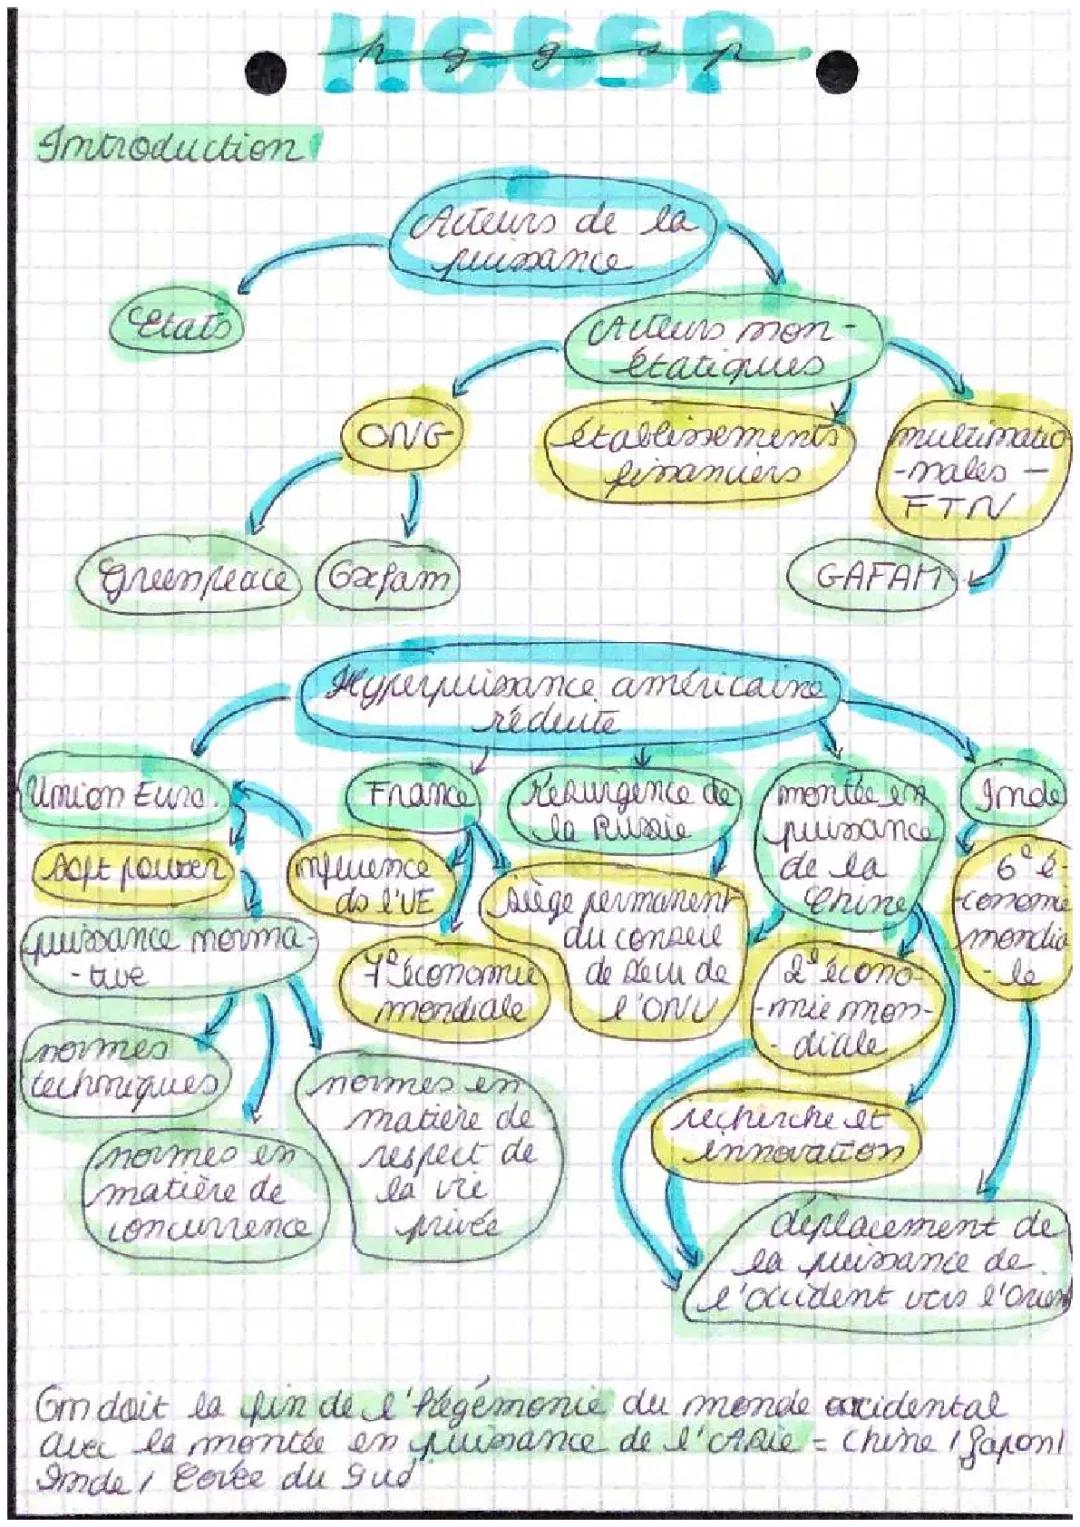 HGGSP
hggsp
Introduction
Acteurs de la
puissance
Etats
Acteurs non-
étatiques
ONG
établissements
financiers
multinatio
-nales -
FTN
Greenpeace
Oxfam
GAFAM
Hyperpuissance américaine
réduite
Union Euro.
France
Résurgence de
la Russie
montée en
puissance
de la
Chine
Inde
Soft power
influence
ds l'UE
siège permanent
du conseil
de sécu de
l'ONU
6e é-
-conomie
mondia
-le
puissance norma-
-tive
7e économie
mondiale
2e écono-
-mie mon-
-diale
normes
techniques
normes en
matière de
respect de
la vie
privée
recherche et
innovation
normes en
matière de
concurrence
déplacement de
la puissance de
l'occident vers l'Orient
On doit la fin de l'hégémonie du monde occidental
avec la montée en puissance de l'Asie = Chine / Japon /
Inde / Corée du Sud